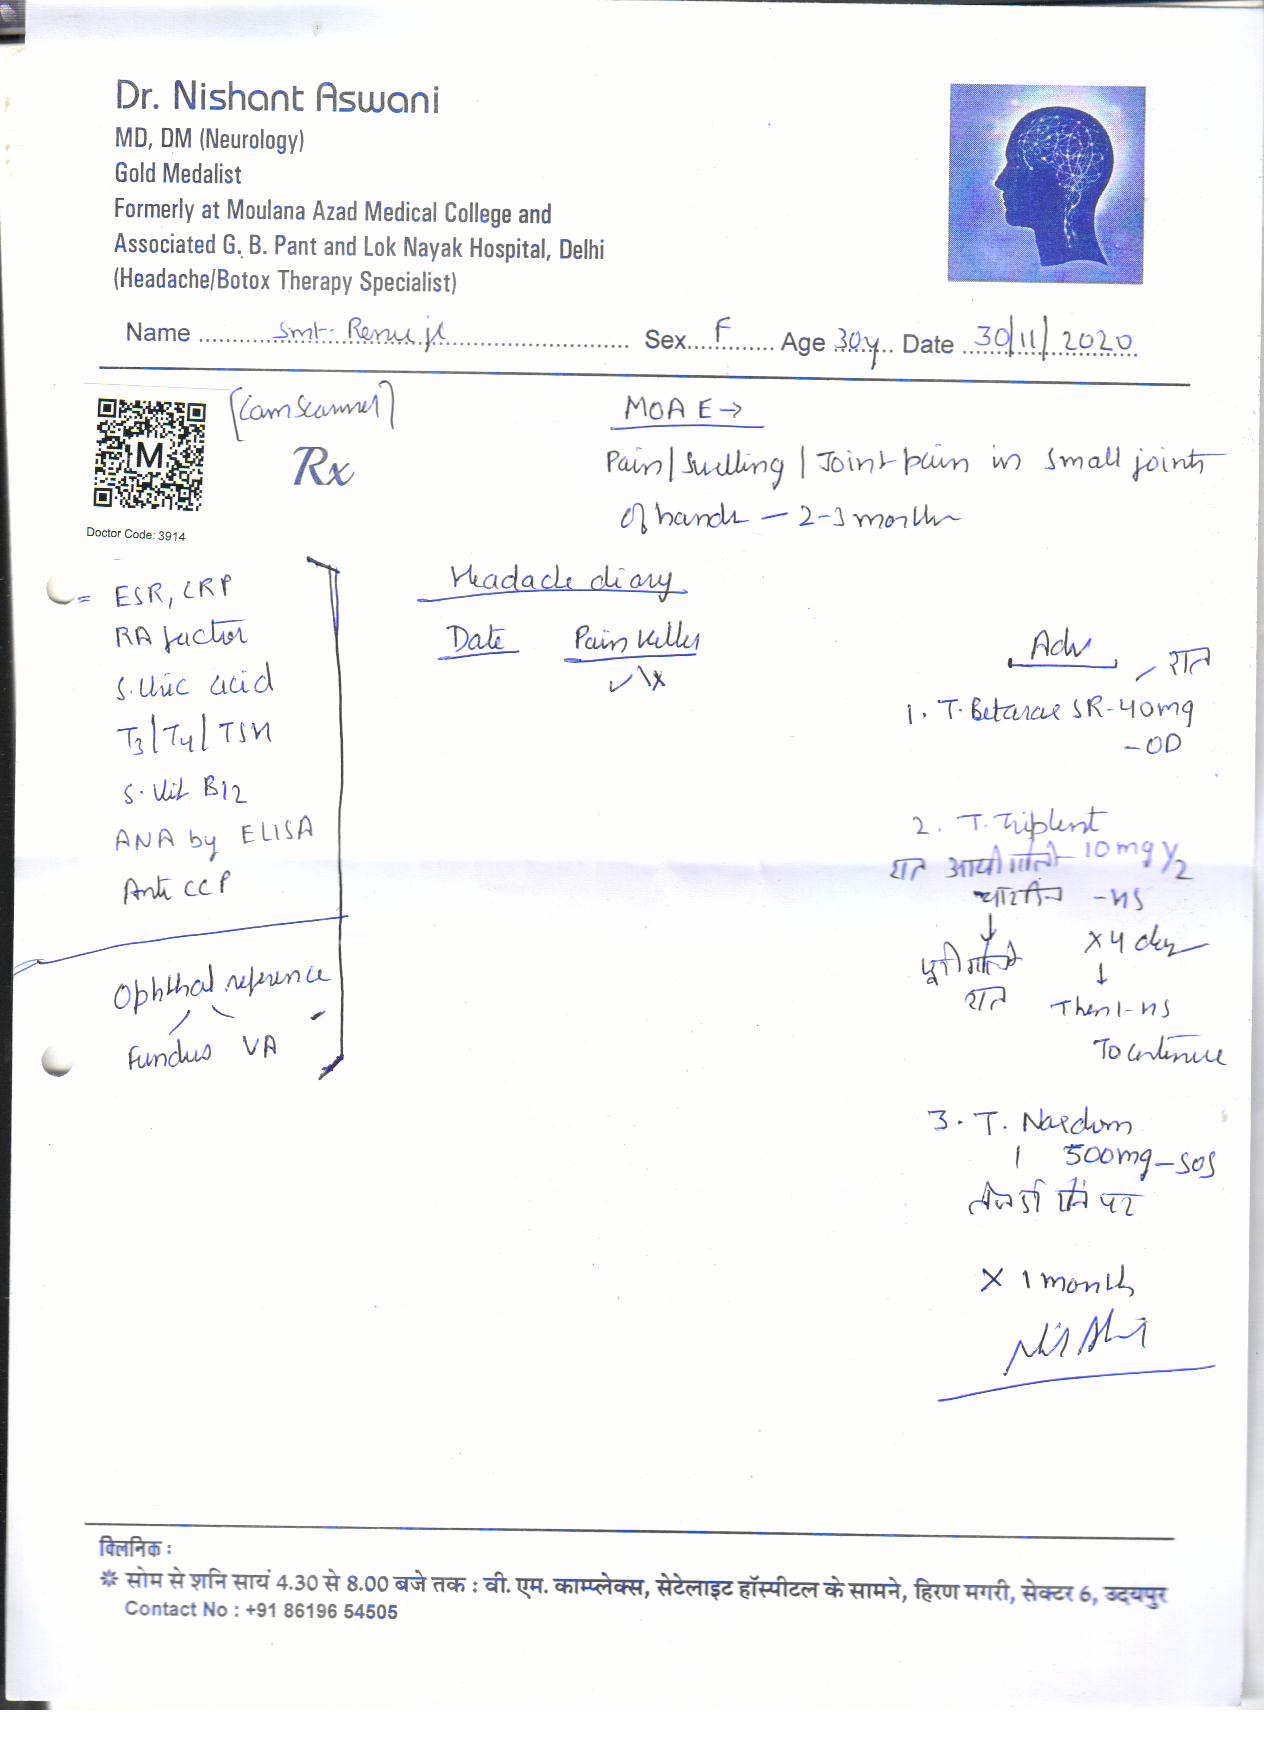 Dr. Nishant Aswani
MD, DM (Neurology)
Gold Medalist
Formerly at Moulana Azad Medical College and
Associated G. B. Pant and Lok Nayak Hospital, Delhi
(Headache/Botox Therapy Specialist)
Name Smt. Renu ji Sex F Age 30y Date 30/11/2020
(Camscanner)
M
Rx
Doctor Code: 3914
MOAE →
Pain/Swelling/Joint pain in small joints
of hands - 2-3 months
= ESR, CRP
RA factor
S. Uric acid
T3/T4/TSH
S. Vit B12
ANA by ELISA
Anti CCP
Ophthal reference
Fundus VA
Headache diary
Date Pain killer
✓\x
Adv
रात
1. T. Betacap SR-40mg
-OD
2. T. Triptent
10mg 1/2
रात आधी गोली
चार दिन -HS
↓ x 4 days
पूरी गोली ↓
रात Then 1-HS
To continue
3. T. Naxdom
1 500mg-SOS
तेज दर्द होने पर
x 1 month
क्लिनिक :
* सोम से शनि सायं 4.30 से 8.00 बजे तक : वी. एम. काम्प्लेक्स, सेटेलाइट हॉस्पीटल के सामने, हिरण मगरी, सेक्टर 6, उदयपुर
Contact No : +91 86196 54505